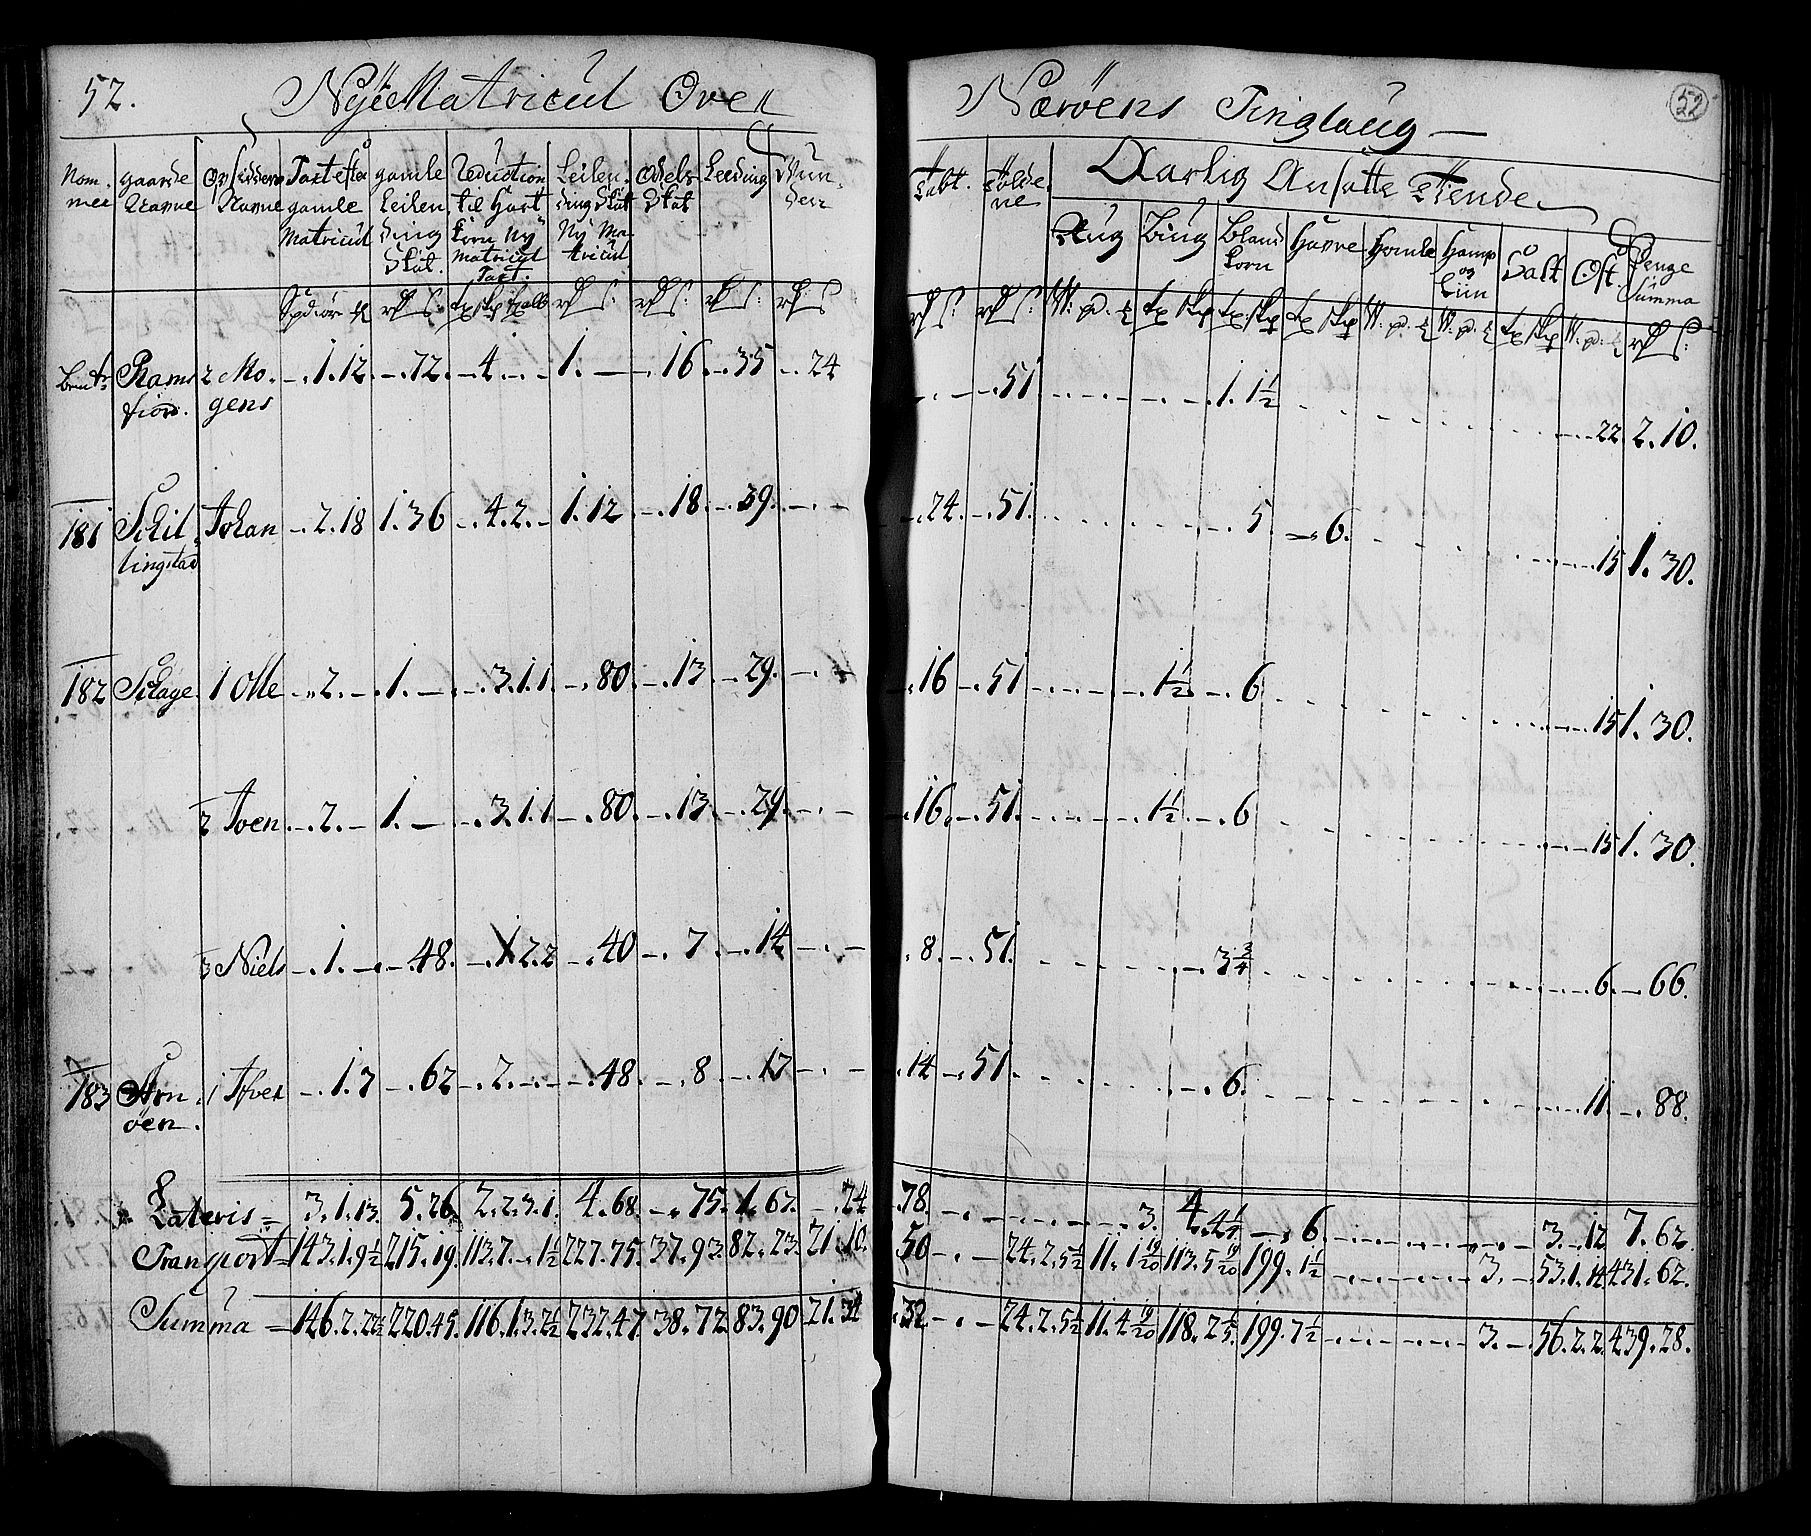 52. Nÿe Matricul Over Nærøens Tinglaug 52
Nom- mer | gaarde Navne | Opsidderns Navne | Taxt efter gamle Matricul | gamle Leilen ding Skat. | Reduction til Hart korn Nÿ Matricul Taxt. | Leilen- ding Skat Nÿ Ma- tricul | Odels Skat | Leeding
Aarlig Ansatte Tiende
Rug | Biug | Bland korn | Havre | Homle | Hamp og Liin | Salt | Ost | Penge Summa
Rams fiord. 2 Mo- gens -. 1. 12. -. 72. -. 4. -. - 1. - -. 16. -. 35 -. 24 -. 51 1. 1½ 22. 2. 10.
181 Schil- lingstad Johan -. 2. 18 1. 36 -. 4. 2. - 1. 12 -. 18. -. 39. -. - -. 24. -. 51. -. 5 -. 6. 15 1. 30.
182 Schage. 1 Olle -. 2. - 1. - -. 3. 1. 1 -. 80. -. 13 -. 29. -. - -. 16 -. 51 1½ -. 6 15 1. 30.
2 Joen -. 2. - 1. - -. 3. 1. 1 -. 80. -. 13. -. 29. -. - -. 16. -. 51. 1½ -. 6 15 1. 30.
3 Niels -. 1. - -. 48. -. 1. 2. 2 -. 40 -. 7 -. 14 -. - . 8. -. 51. -. 3¾ 6. -. 66.
183 Arn- öen. 1 Ifver -. 1. 7 -. 62 -. 2. -. - -. 48. -. 8 -. 17 -. - . 14 -. 51. -. 6. 11. -. 88.
Lateris = 3. 1. 13. 5. 26. 2. 2. 3. 1. 4. 68. -. 75. 1. 67. -. 24 . 78. -. - 3. 4. 4¼ -. 6 3. -. 12 7. 62.
Transport = 143. 1. 9½ 215. 19. 113. 7. - 1½ 227. 75. 37. 93. 82. 23. 21. 10. 50 -. - 24. 2. 5½ 11. 1 19/20 113. 5 19/20 199. 1½ 3. -. 53. 1. 14. 431. 62.
Summa = 146. 2. 22½ 220. 45. 116. 1. 3. 2½ 232. 47. 38. 72. 83. 90. 21. 34 . 32. -. - 24. 2. 5½ 11. 4 19/20 118. 2 199. 7½ 3. -. 56. 2. 2. 439. 28.